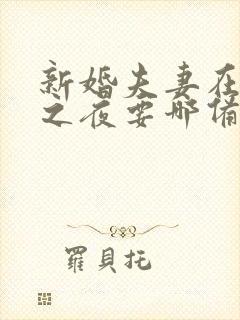 新婚夫妻在
之夜要哪備
羅貝托